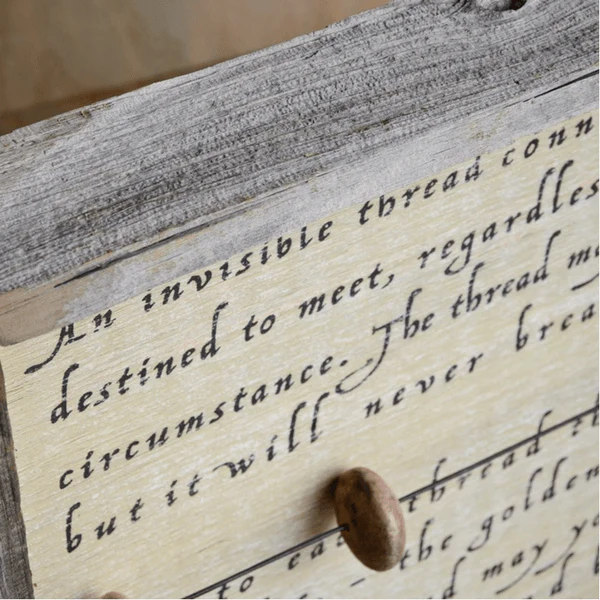 An invisible thread conn
destined to meet, regardles
circumstance. The thread m
but it will never brea
thread
to ea
the golden
may yo